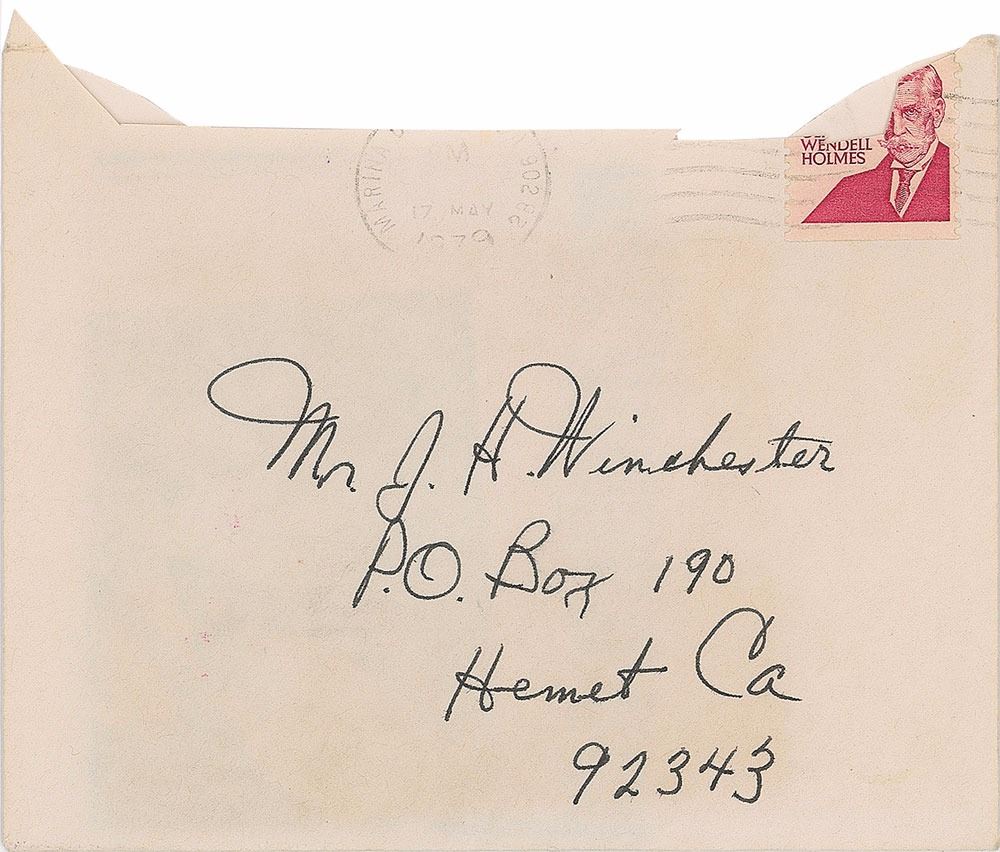 MARINA 902
17 MAY
1979
WENDELL
HOLMES
Mr. J. H. Winchester
P.O. Box 190
Hemet Ca
92343